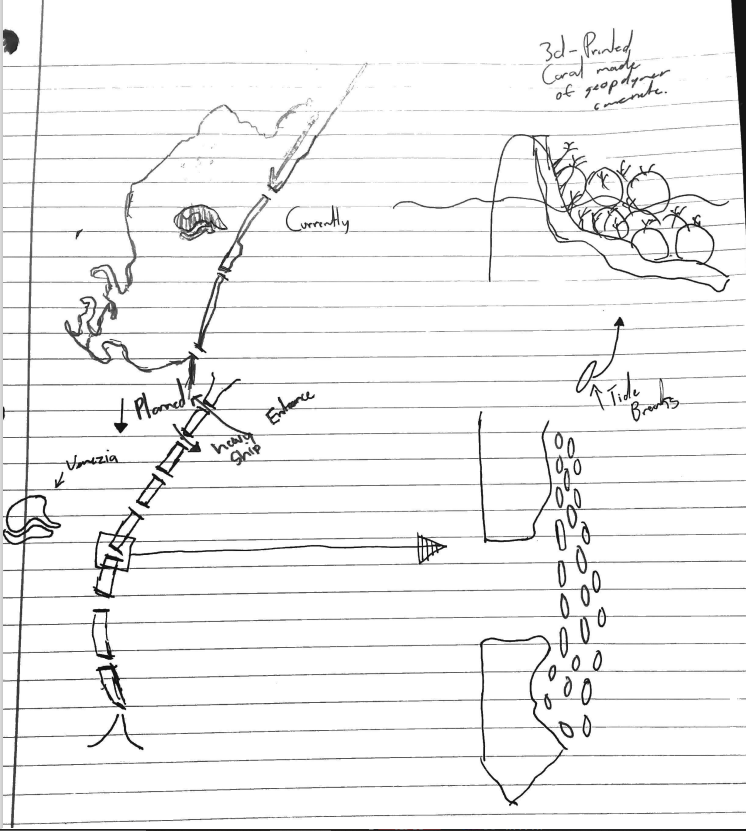 3d-Printed
Coral made
of geopolymer
concrete.
Currently
Planned
Entrance
heavy
Ship
Venezia
Tide
Breaks